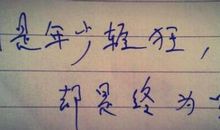 是年少轻狂，
却是终为